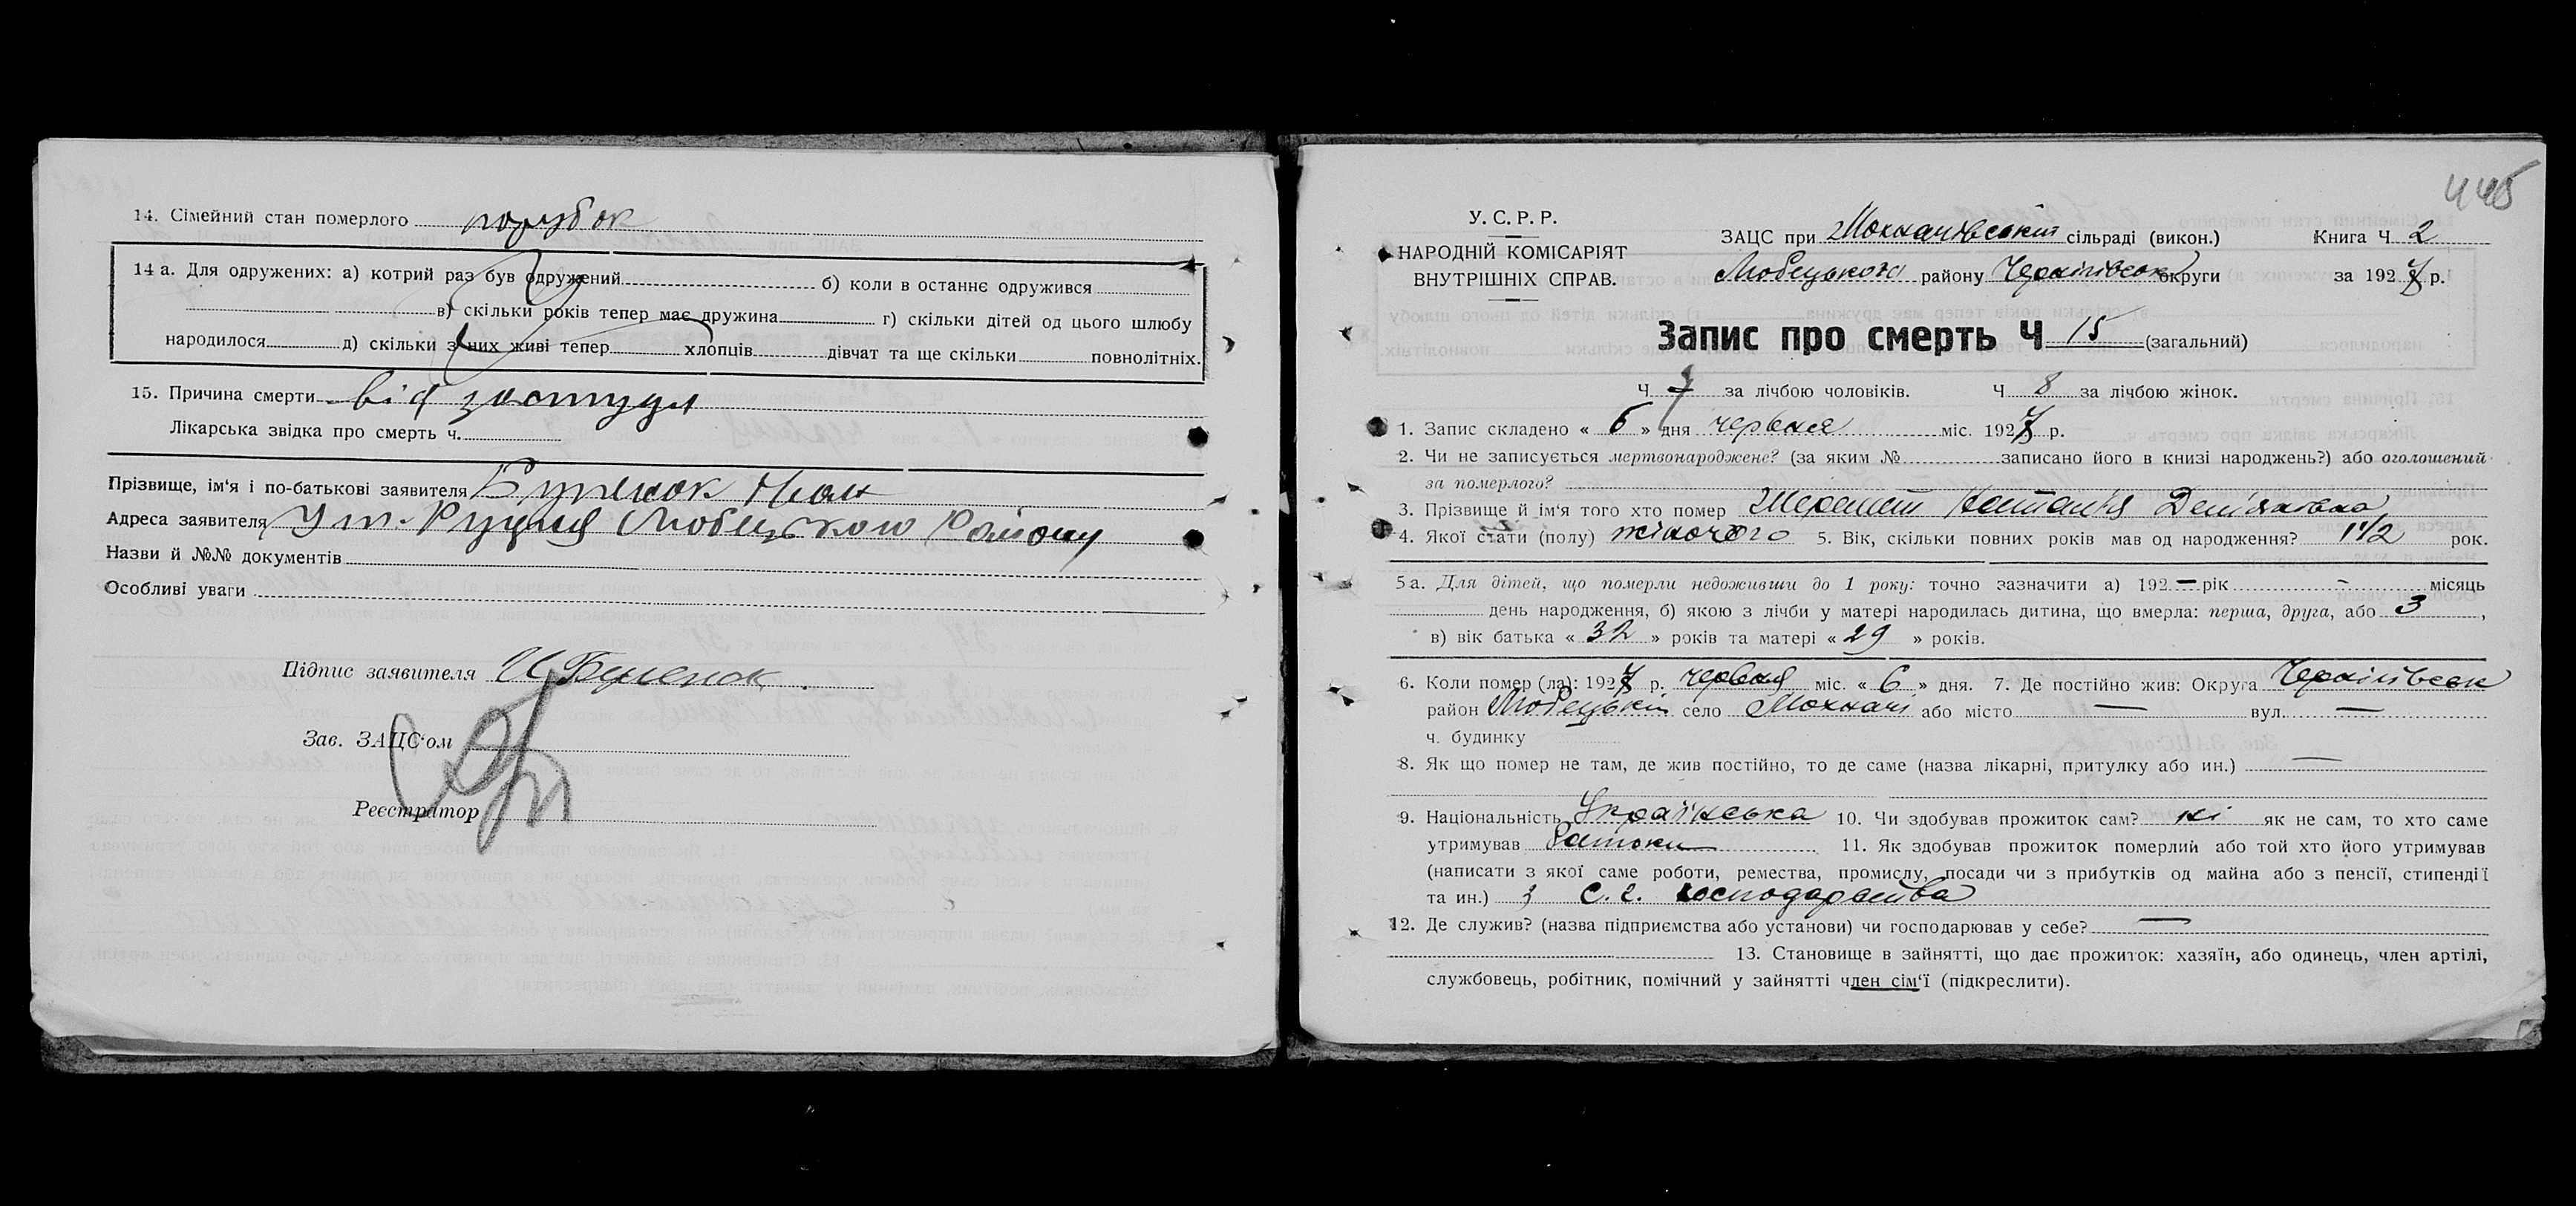 14. Сімейний стан померлого парубок
14 а. Для одружених: а) котрий раз був одружений б) коли в останнє одружився
в) скільки років тепер має дружина г) скільки дітей од цього шлюбу
народилося д) скільки з них живі тепер хлопців дівчат та ще скільки повнолітніх.
15. Причина смерти від застуди
Лікарська звідка про смерть ч.
Прізвище, ім'я і по-батькові заявителя
Адреса заявителя Любецького Району
Назви й №№ документів
Особливі уваги
Підпис заявителя
Зав. ЗАЦС'ом
Реєстратор
445
У. С. Р. Р.
НАРОДНІЙ КОМІСАРІЯТ
ВНУТРІШНІХ СПРАВ.
ЗАЦС при сільраді (викон.) Книга Ч 2
Любецького району Чернігівськ округи за 1927 р.
Запис про смерть Ч 15 (загальний)
Ч 7 за лічбою чоловіків. Ч 8 за лічбою жінок.
1. Запис складено « 6 » дня червня міс. 1927 р.
2. Чи не записується мертвонароджене? (за яким № записано його в книзі народжень?) або оголошений
за померлого?
3. Прізвище й ім'я того хто помер Шерешт Наталія Дем'янівна
4. Якої стати (полу) жіночого 5. Вік, скільки повних років мав од народження? 1 1/2 рок.
5 а. Для дітей, що померли недоживши до 1 року: точно зазначити а) 192 — рік - місяць
день народження, б) якою з лічби у матері народилась дитина, що вмерла: перша, друга, або 3 ,
в) вік батька « 32 » років та матері « 29 » років.
6. Коли помер (ла): 1927 р. червня міс. « 6 » дня. 7. Де постійно жив: Округа Чернігівськ
район Любецький село Мохначі або місто — вул. —
ч. будинку
8. Як що помер не там, де жив постійно, то де саме (назва лікарні, притулку або ин.) —
9. Національність Українська 10. Чи здобував прожиток сам? ні як не сам, то хто саме
утримував Батьки 11. Як здобував прожиток померлий або той хто його утримував
(написати з якої саме роботи, ремества, промислу, посади чи з прибутків од майна або з пенсії, стипендії
та ин.) з с. г. господарства
12. Де служив? (назва підприємства або установи) чи господарював у себе? —
13. Становище в зайнятті, що дає прожиток: хазяїн, або одинець, член артілі,
службовець, робітник, помічний у зайнятті член сім'ї (підкреслити).